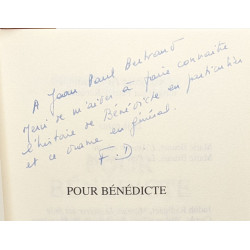 A Jean Paul Bertrand
Merci de m'aider à faire connaitre
l'histoire de Bénédicte en particulier
et ce drame en général.
F.D
POUR BÉNÉDICTE